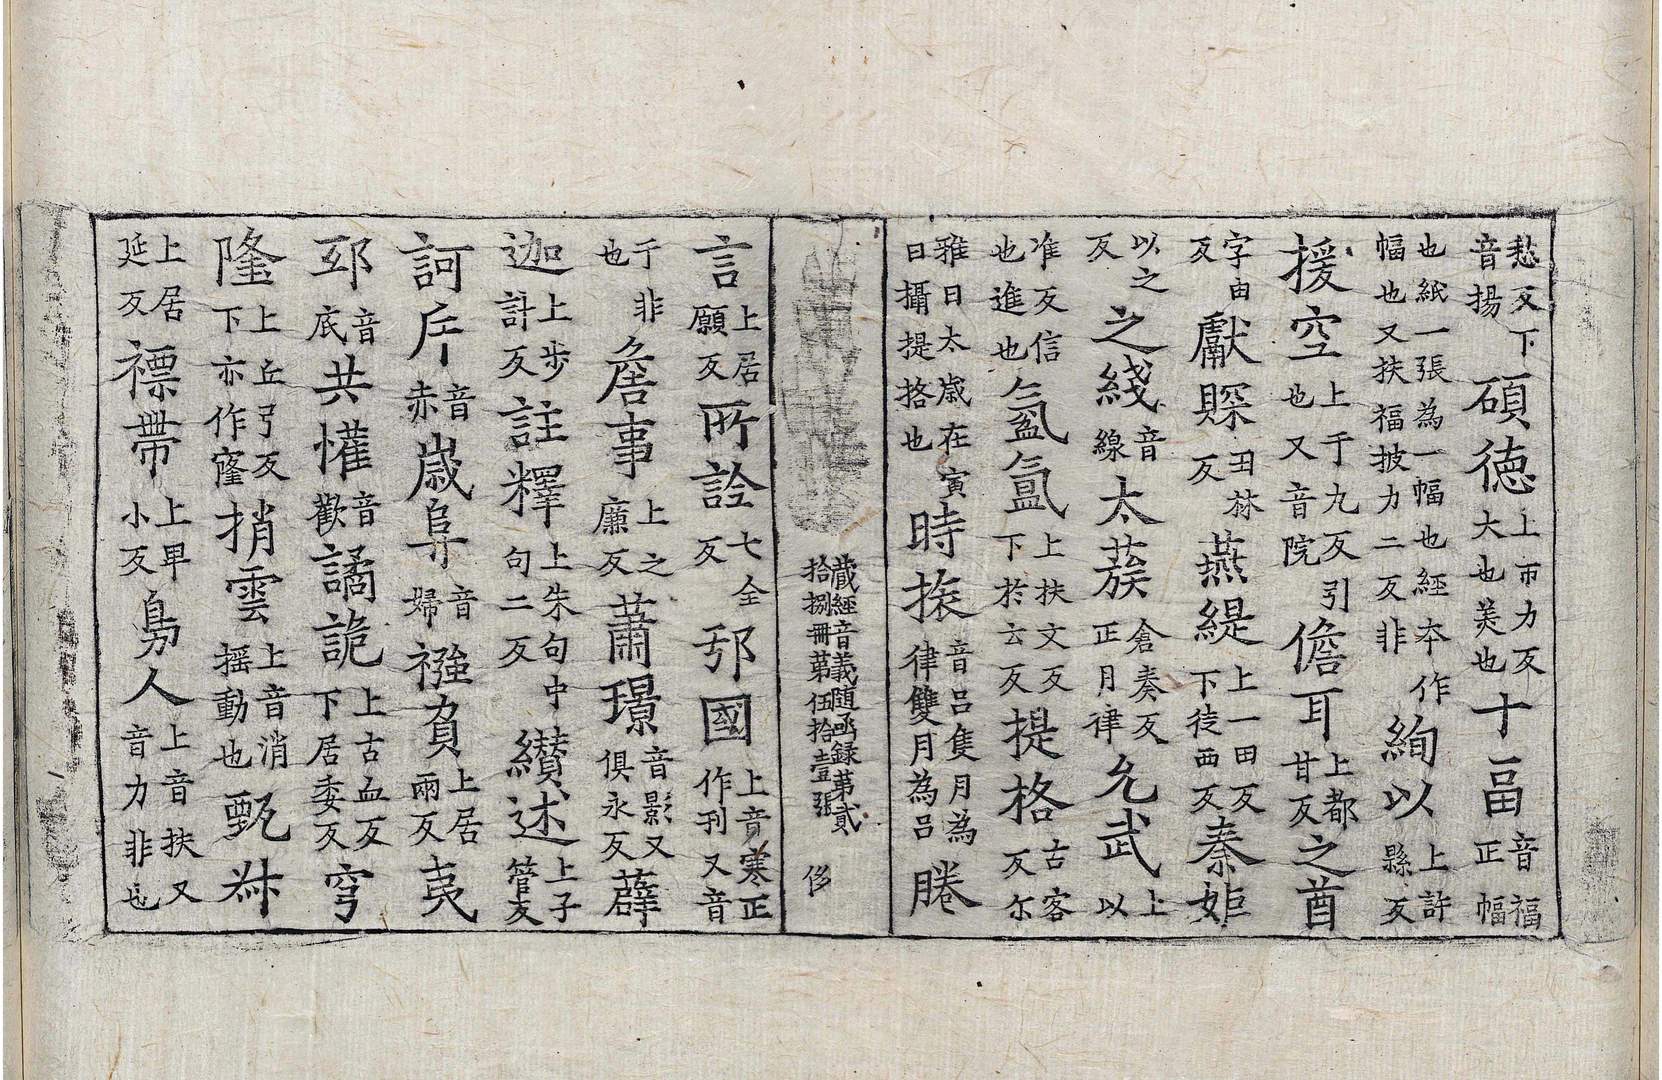 愁反下音揚碩德上市力反大也美也十畐音福正幅
也紙一張為一幅也經本作幅也又扶福披力二反非絢以上許縣反
援空上于九反引也又音院儋耳上都甘反之酋
字由反獻賝丑林反燕緹上一田反下徒西反秦姖
以之反之綫音線太蔟倉奏反正月律允武上以
准反信也進也氤氳上扶文反下於云反提格古客反尔
雅曰太歳在寅曰攝提挌也時㨍音呂隻月為律雙月為呂牓
藏經音義随函録第貳拾捌冊第伍拾壹張 侈
言上居願反所詮七全反邗國上音寒正作刊又音
于非也詹事上之廉反蕭璟音影又俱永反薜
迦上步計反註釋上朱句中句二反纉述上子管反
訶斥音赤歳𨸏音婦襁負上居兩反夷
邳音底共懽音歡譎詭上古血反下居委反穹
隆上丘弓反下亦作窿捎雲上音消摇動也甄𣏌
上居延反褾帶上早小反㠀人上音扶又音力非也